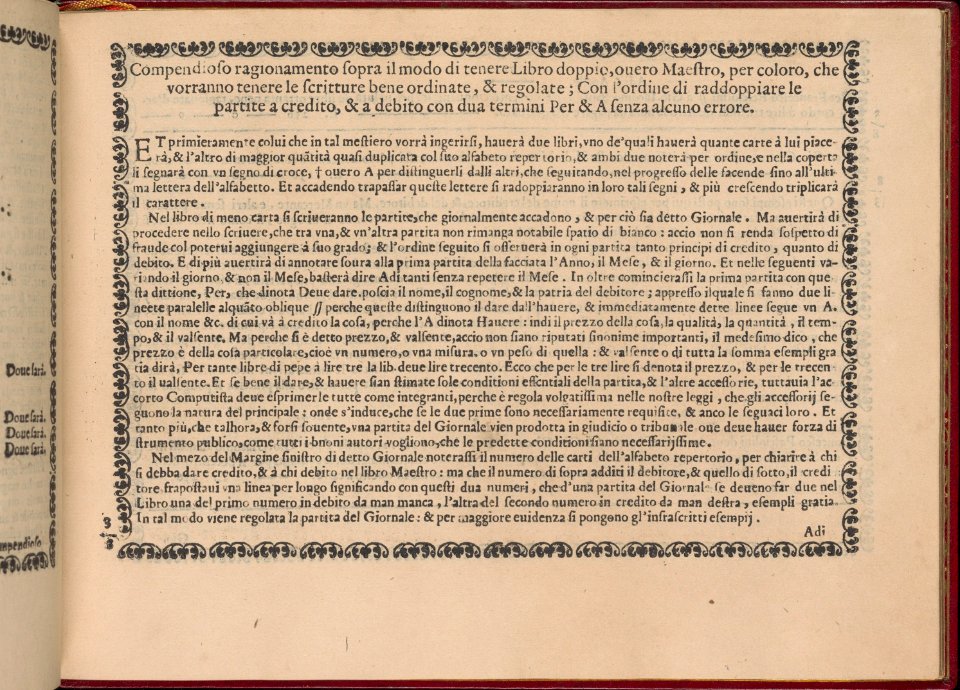 Doue sarà.
Doue sarà.
Doue sarà.
Doue sarà.
mpendioso
Compendioso ragionamento sopra il modo di tenere Libro doppio, ouero Maestro, per coloro, che
vorranno tenere le scritture bene ordinate, & regolate; Con l'ordine di raddoppiare le
partite a credito, & a debito con dua termini Per & A senza alcuno errore.
ET primieramente colui che in tal mestiero vorrà ingerirsi, hauerà due libri, vno de'quali hauerà quante carte à lui piace-
rà, & l'altro di maggior quãtità quasi duplicata col suo alfabeto repertorio, & ambi due noterà per ordine, e nella coperta
li segnarà con vn segno di croce, † ouero A per distinguerli dalli altri, che seguitando, nel progresso delle facende sino all'ulti-
ma lettera dell'alfabetto. Et accadendo trapassar queste lettere si radoppiaranno in loro tali segni, & più crescendo triplicarà
il carattere.
Nel libro di meno carta si scriueranno le partite, che giornalmente accadono, & per ciò sia detto Giornale. Ma auertirà di
procedere nello scriuere, che tra vna, & vn'altra partita non rimanga notabile spatio di bianco: accio non si renda sospetto di
fraude col poterui aggiungere à suo grado; & l'ordine seguito si osseruerà in ogni partita tanto principi di credito, quanto di
debito. E di più auertirà di annotare soura alla prima partita della facciata l'Anno, il Mese, & il giorno. Et nelle seguenti va-
riando il giorno, & non il Mese, basterà dire Adi tanti senza repetere il Mese. In oltre comincierassi la prima partita con que
sta dittione, Per, che dinota Deue dare. poscia il nome, il cognome, & la patria del debitore; appresso il quale si fanno due li-
neete paralelle alquãto oblique // perche queste distinguono il dare dall'hauere, & immediatamente dette linee segue vn A.
con il nome &c. di cui và à credito la cosa, perche l'A dinota Hauere: indi il prezzo della cosa, la qualità, la quantità, il tem-
po, & il valsente. Ma perche si è detto prezzo, & valsente, accio non siano riputati sinonime importanti, il medesimo dico, che
prezzo è della cosa particolare, cioè vn numero, o vna misura. o vn peso di quella: & valsente o di tutta la somma esempli gra
tia dirà, Per tante libre di pepe à lire tre la lib. deue lire trecento. Ecco che per le tre lire si denota il prezzo, & per le trecen-
to il ualsente. Et se bene il dare, & hauere sian stimate sole conditioni essentiali della partita, & l'altre accessorie, tuttauia l'ac-
corto Computista deue esprimerle tutte come integranti, perche è regola volgatissima nelle nostre leggi, che gli accessorij se-
guono la natura del principale: onde s'induce, che se le due prime sono necessariamente requisite, & anco le seguaci loro. Et
tanto più, che talhora, & forsi souente, vna partita del Giornale vien prodotta in giudicio o tribunale oue deue hauer forza di
strumento publico, come tutti i bnoni autori vogliono, che le predette conditioni siano necessarijssime.
Nel mezo del Margine sinistro di detto Giornale noterassi il numero delle carti dell'alfabeto repertorio, per chiarire à chi
si debba dare credito, & à chi debito nel libro Maestro: ma che il numero di sopra additi il debitore, & quello di sotto, il credi
tore frapostaui vna linea per longo significando con questi dua numeri, che d'una partita del Giornale se deueno far due nel
Libro una del primo numero in debito da man manca, l'altra del secondo numero in credito da man destra, esempli gratia
In tal modo viene regolata la partita del Giornale: & per maggiore euidenza si pongono gl'infrascritti esempij.
Adi